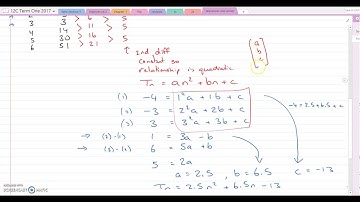 12C Term One 2017
3 > 6 > 5
4 14 > 11 > 5
5 30 > 16 > 5
6 51 > 21
↑ 2nd diff
constant so
relationship is quadratic
Tn = an² + bn + c
[a b c]
(1) -4 = 1²a + 1b + c
(2) -3 = 2²a + 2b + c
(3) 3 = 3²a + 3b + c
-4 = 2.5 + 6.5 + c
→ (2)-(1) 1 = 3a - b
→ (3)-(2) 6 = 5a + b
5 = 2a
a = 2.5, b = 6.5 c = -13
Tn = 2.5n² + 6.5n - 13